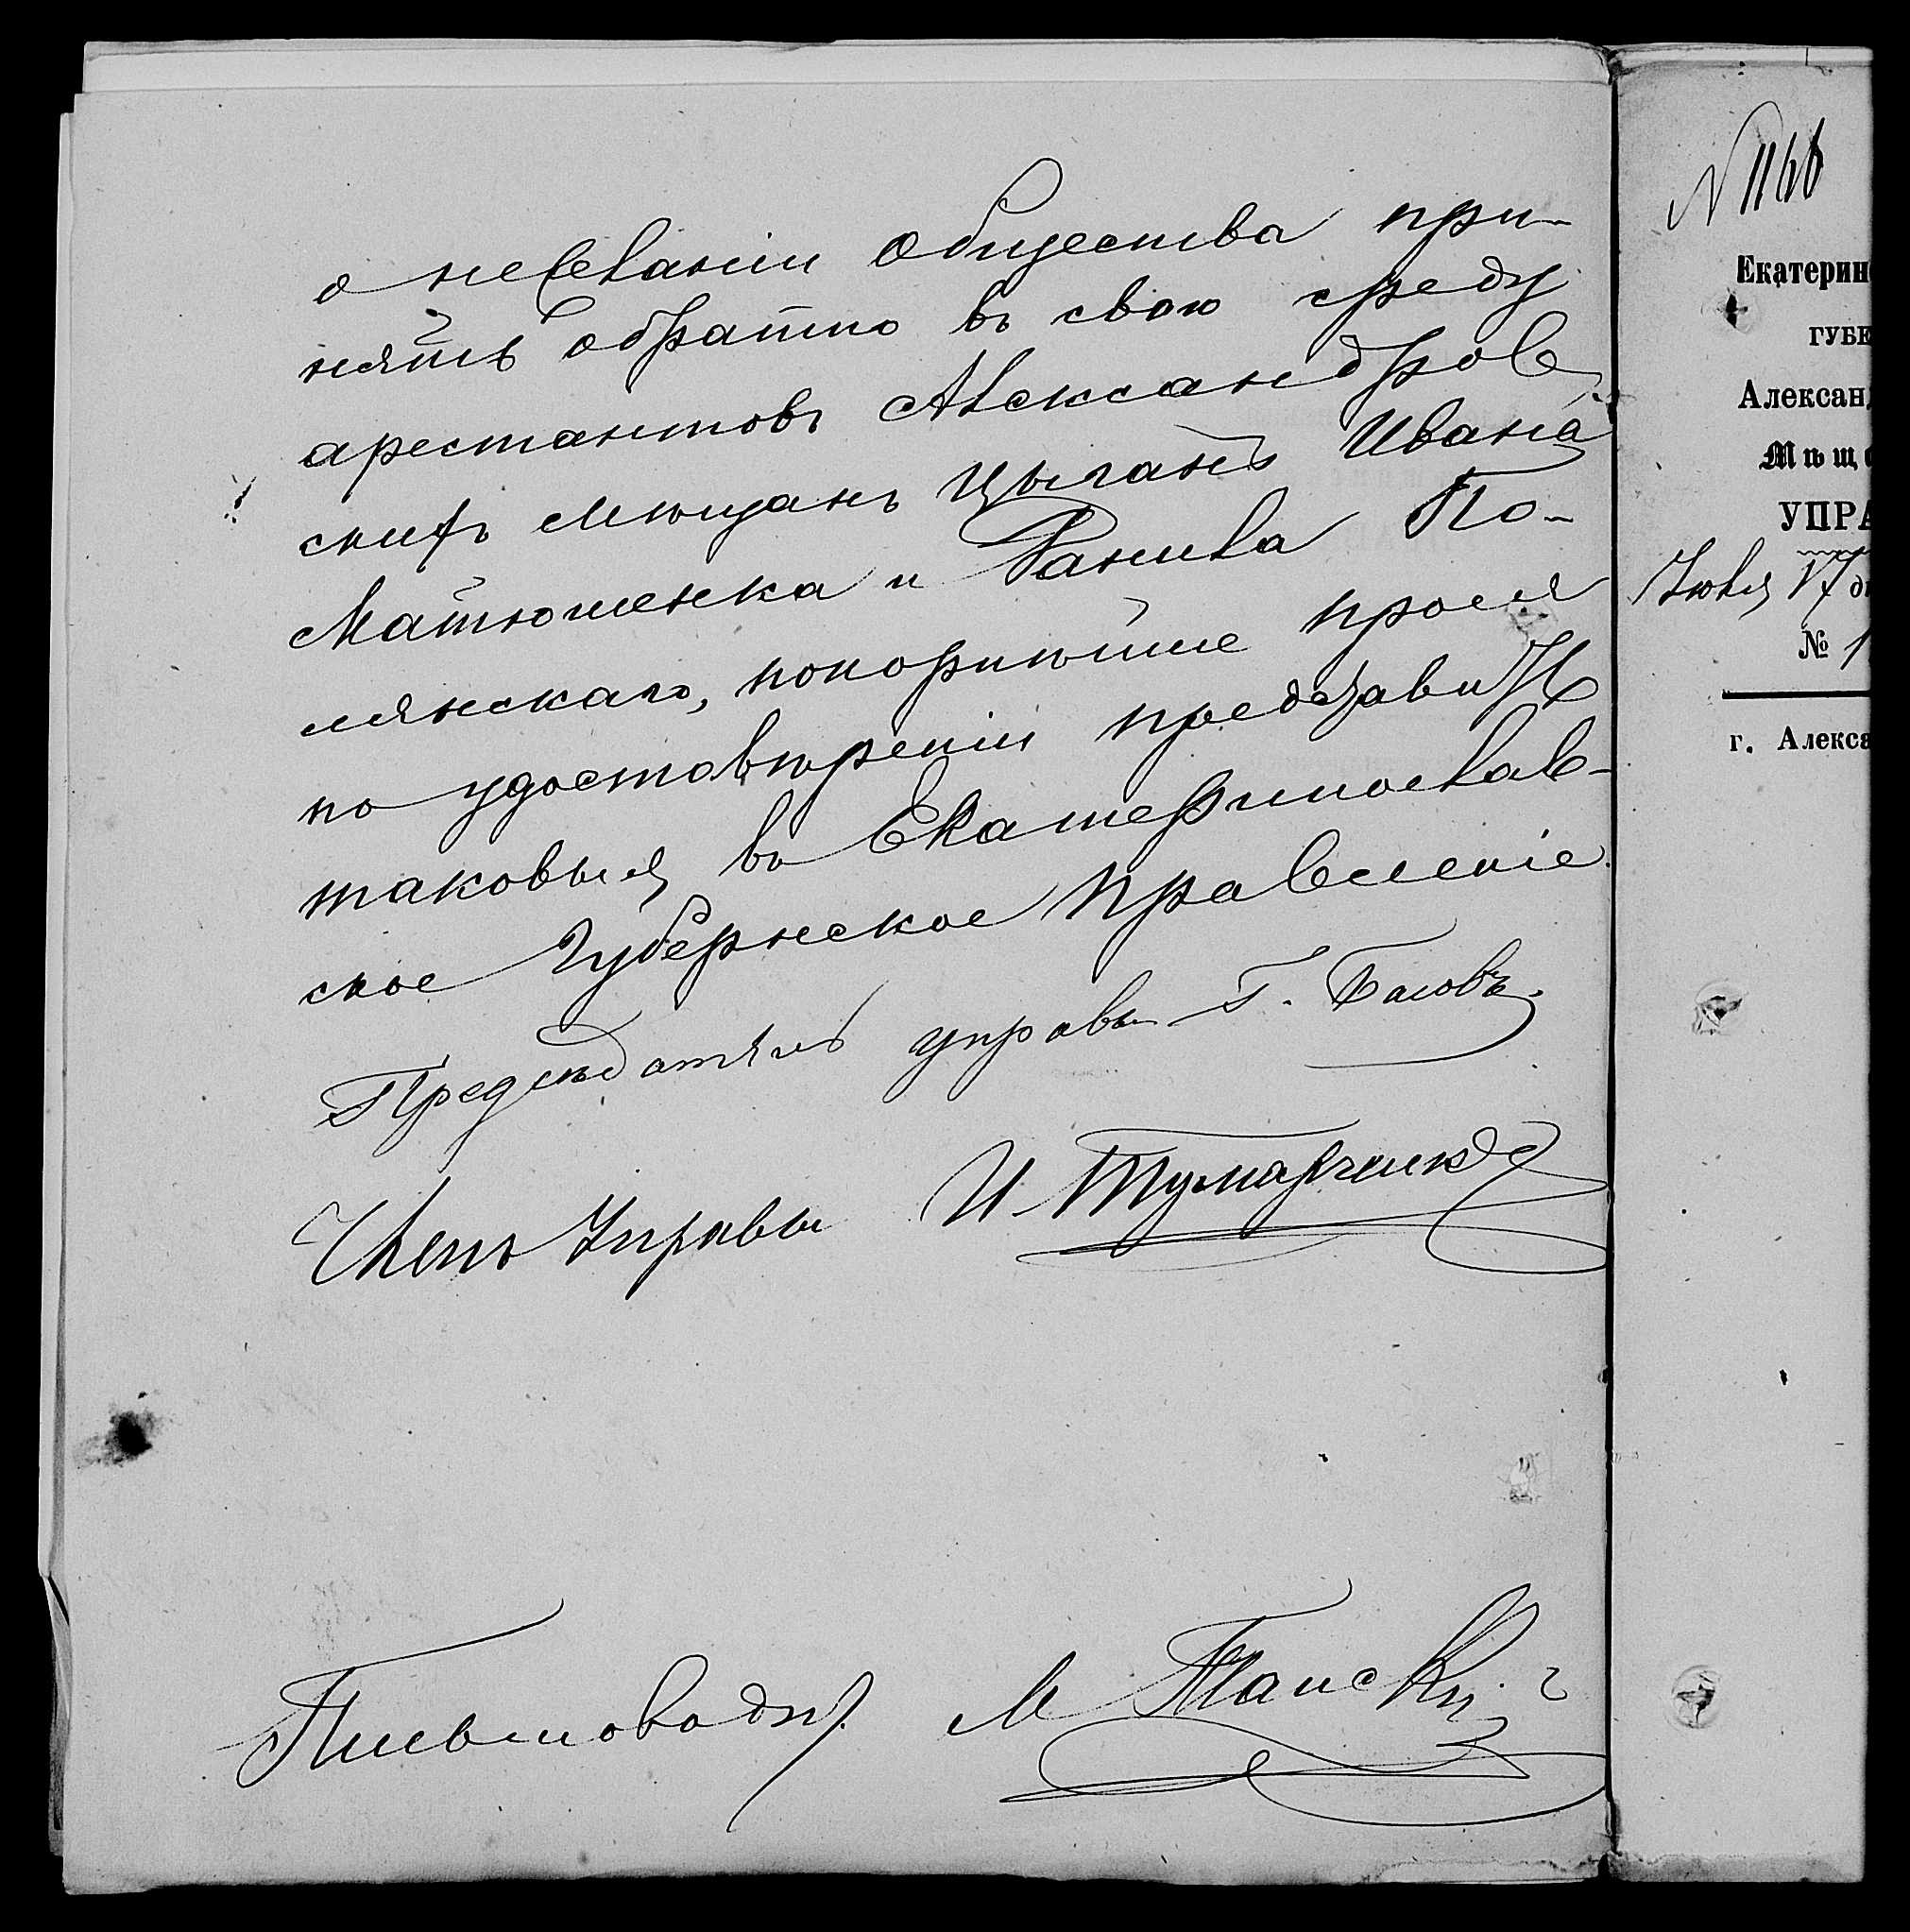 о нежеланіи общества при-
нять обратно въ свою среду
арестантовъ Александров-
скихъ мѣщанъ цыганъ Ивана
Матюшенка и Данила По-
лянскаго, покорнѣйше прося
по удостовѣреніи представить
таковыя въ Екатеринослав-
ское Губернское Правленіе.
Предсѣдатель управы Г.
Членъ Управы И.
Письмоводит. М
N 1166
Екатерин
ГУБЕ
Александ
Мѣща
УПРА
Іюля 17 дн
№ 1
г. Алекса